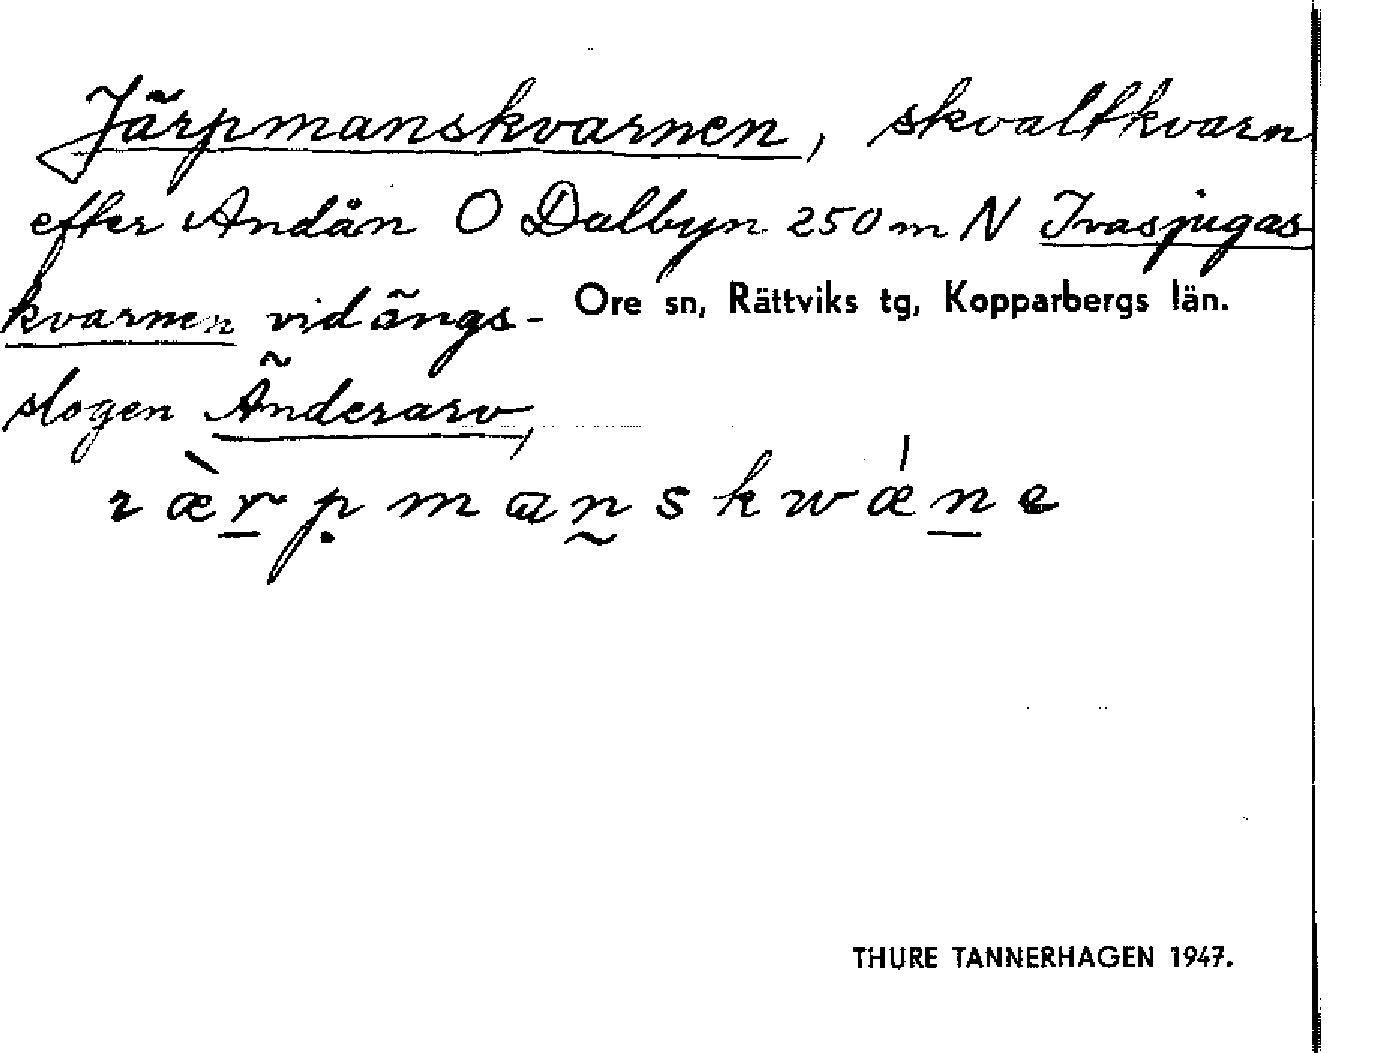 Järpmanskvarnen, skvaltkvarn
efter Andån O Dalbyn 250 m N Ivasjugas
kvarnen vid ängs-
Ore sn, Rättviks tg, Kopparbergs län.
slogen Änderarv,
ɪæ̀rpmanskwǽne
THURE TANNERHAGEN 1947.